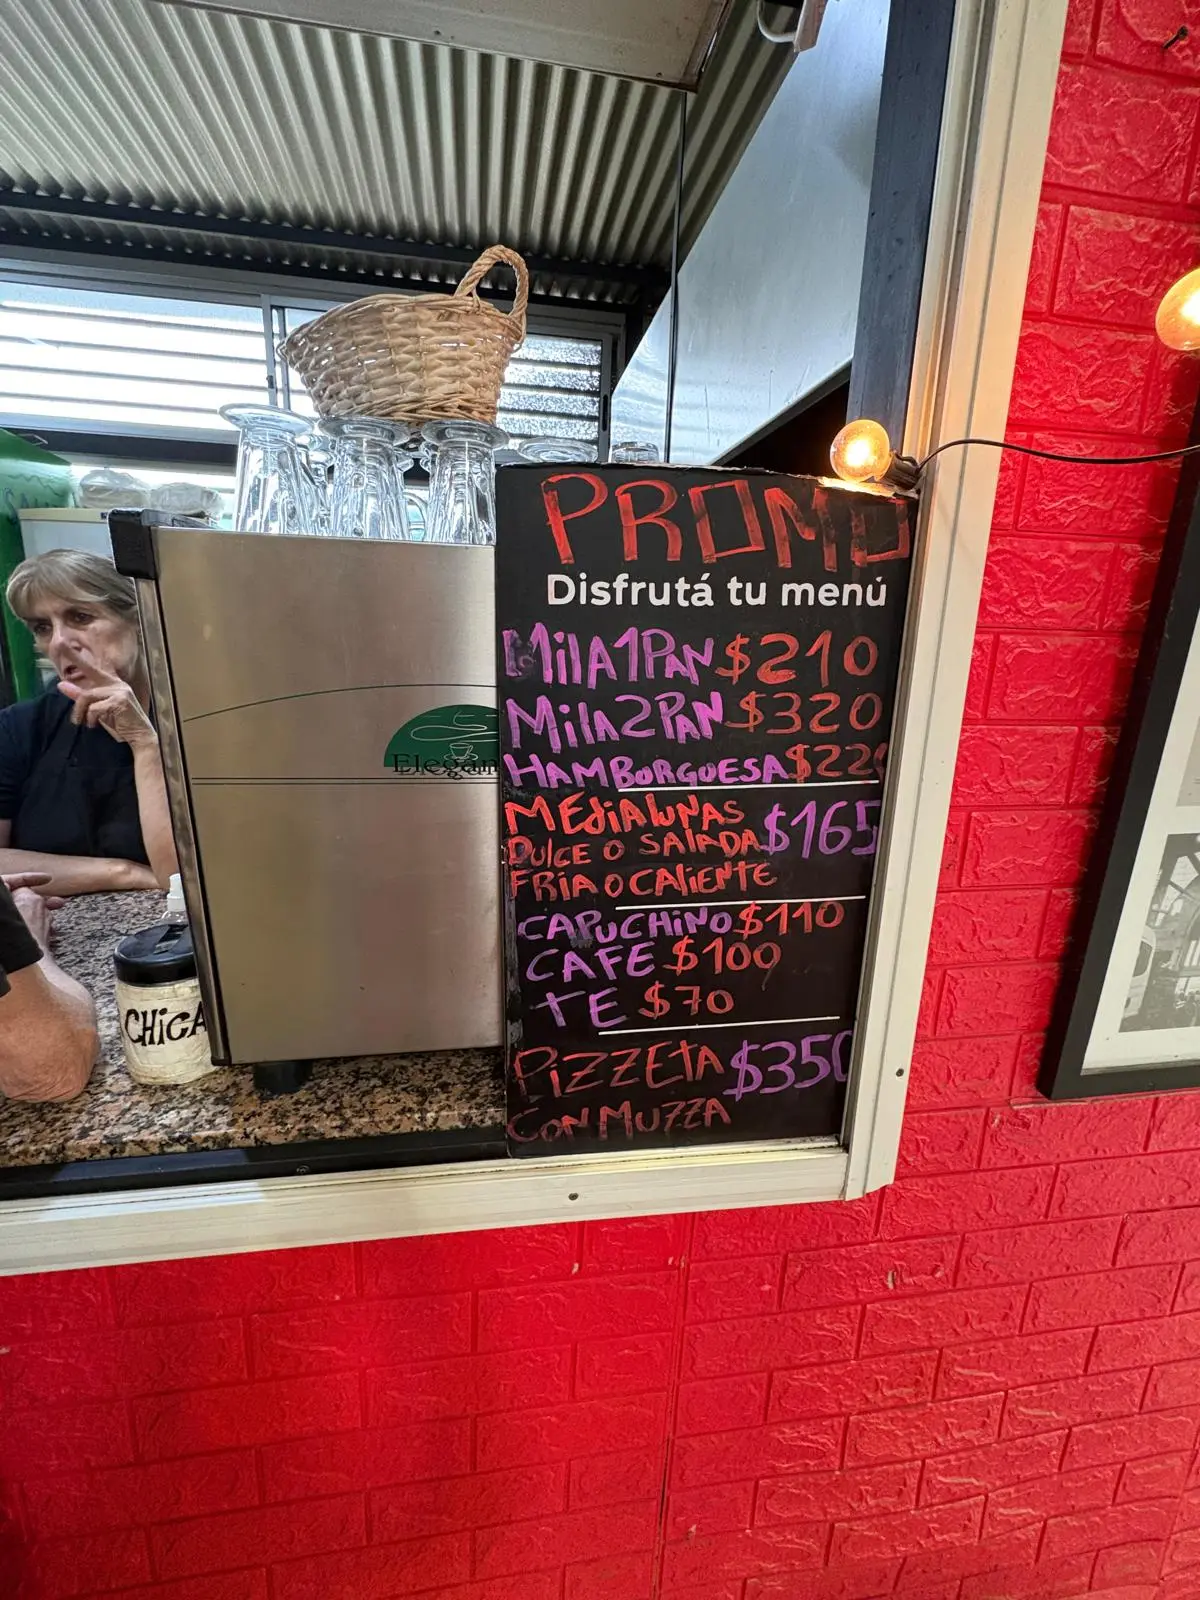 PROMO
Disfrutá tu menú
MilA 1 PAN $210
Mila 2 PAN $320
HAMBORGUESA $220
MEDIALUNAS
DULCE O SALADA $165
FRIA O CALIENTE
CAPUCHINO $110
CAFE $100
TE $70
PIZZETA $350
CON MUZZA
Elegan
CHICA